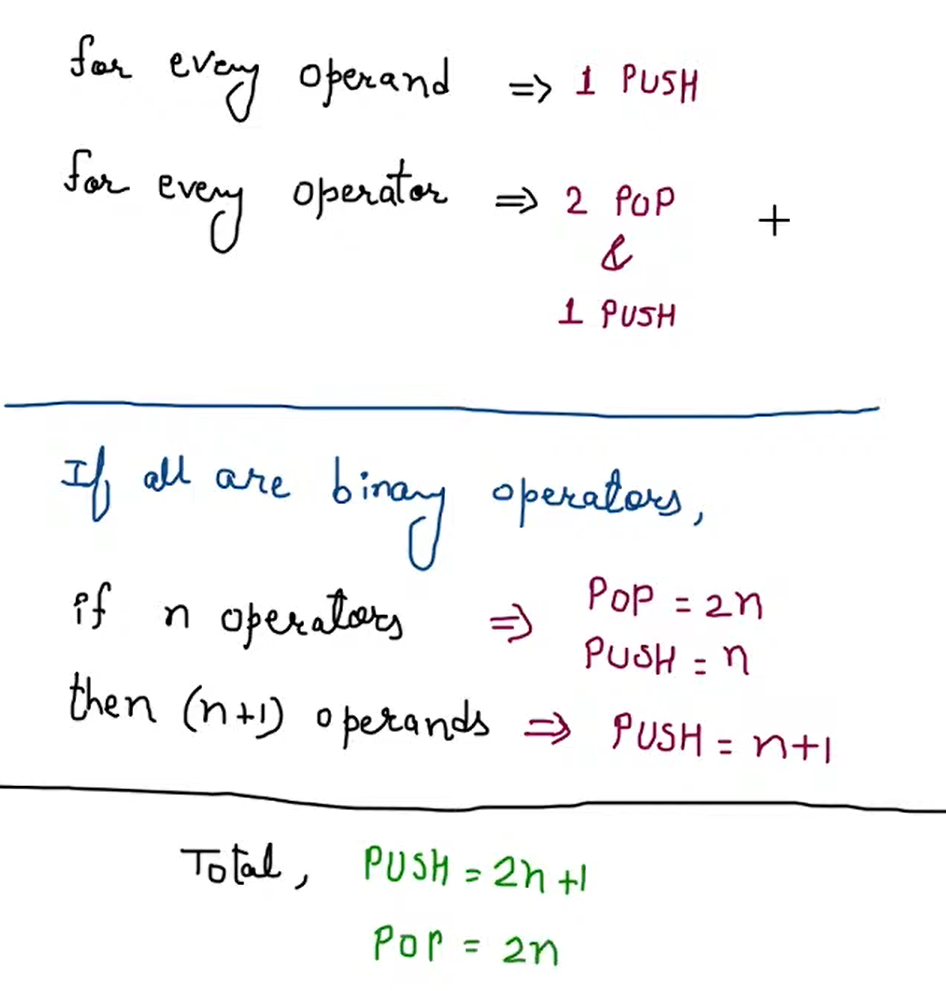 for every operand => 1 PUSH
for every operator => 2 POP +
&
1 PUSH
If all are binary operators,
if n operators => POP = 2n
PUSH = n
then (n+1) operands => PUSH = n+1
Total, PUSH = 2n+1
POP = 2n